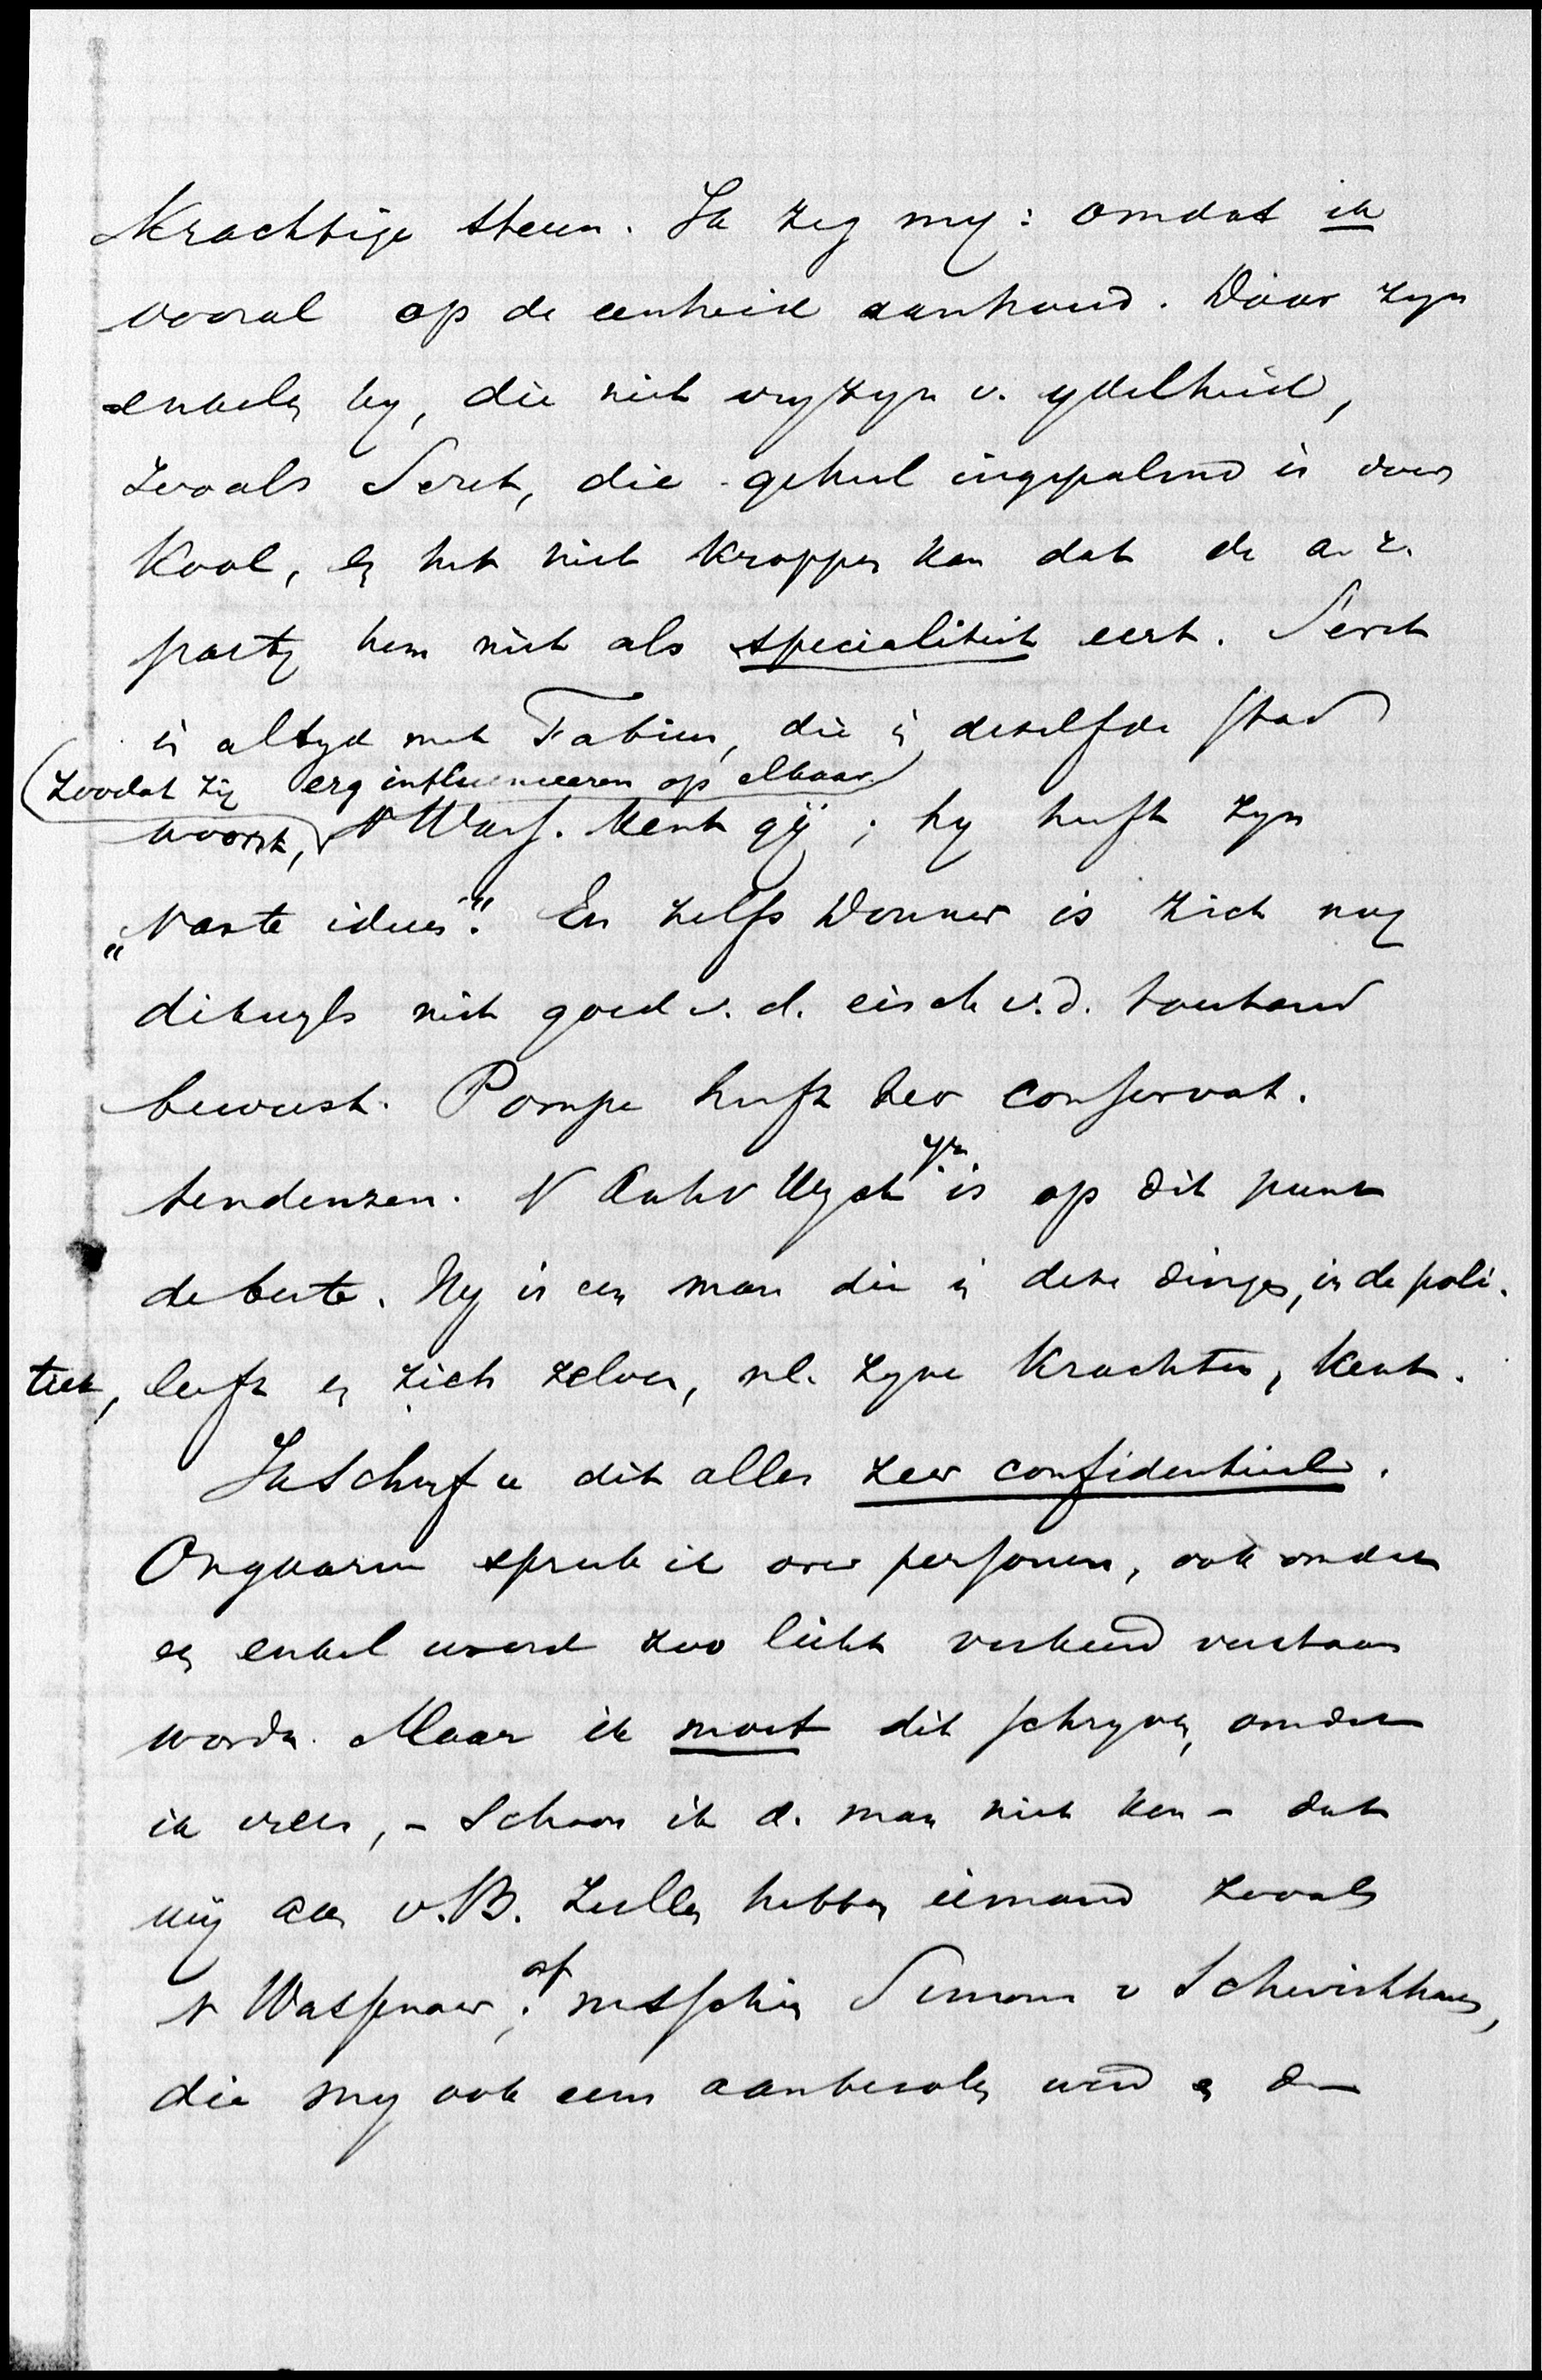 krachtige steun. Ik zeg my: omdat ik
vooral op de eenheid aanhoud. Daar zyn
enkelen by, die niet vry zyn v. ydelheid,
zooals Seret, die geheel ingepalmd is door
Kool, en het niet kroppen kan dat de a.r.
party hem niet als specialiteit eert. Seret
is altyd met Fabius, die in dezelfde stad
(zoodat zij erg influenceeren op elkaar)
woont, v Wass. kent gij; hy heeft zyn
„vaste ideeën". En zelfs Donner is zich nog
dikwyls niet goed v. d. eisch v.d. toestand
bewust. Pompe heeft zeer conservat.
tendenzen. V Asch v Wyck is op dit punt
de beste. Hy is een man die in deze dingen, in de poli-
tiek, leeft en zich zelven, nl. zyne krachten, kent.
Ik schryf u dit alles zeer confidentieel.
Ongaarne spreek ik over personen, ook omdat
een enkel woord zoo licht verkeerd verstaan
wordt. Maar ik moet dit schryven, omdat
ik vrees, - schoon ik d. man niet ken - dat
wij aan v.B. zullen hebben iemand zooals
v Wassenaer, of misschien Simons v Schwichthaus,
die my ook eens aanbevolen werd en